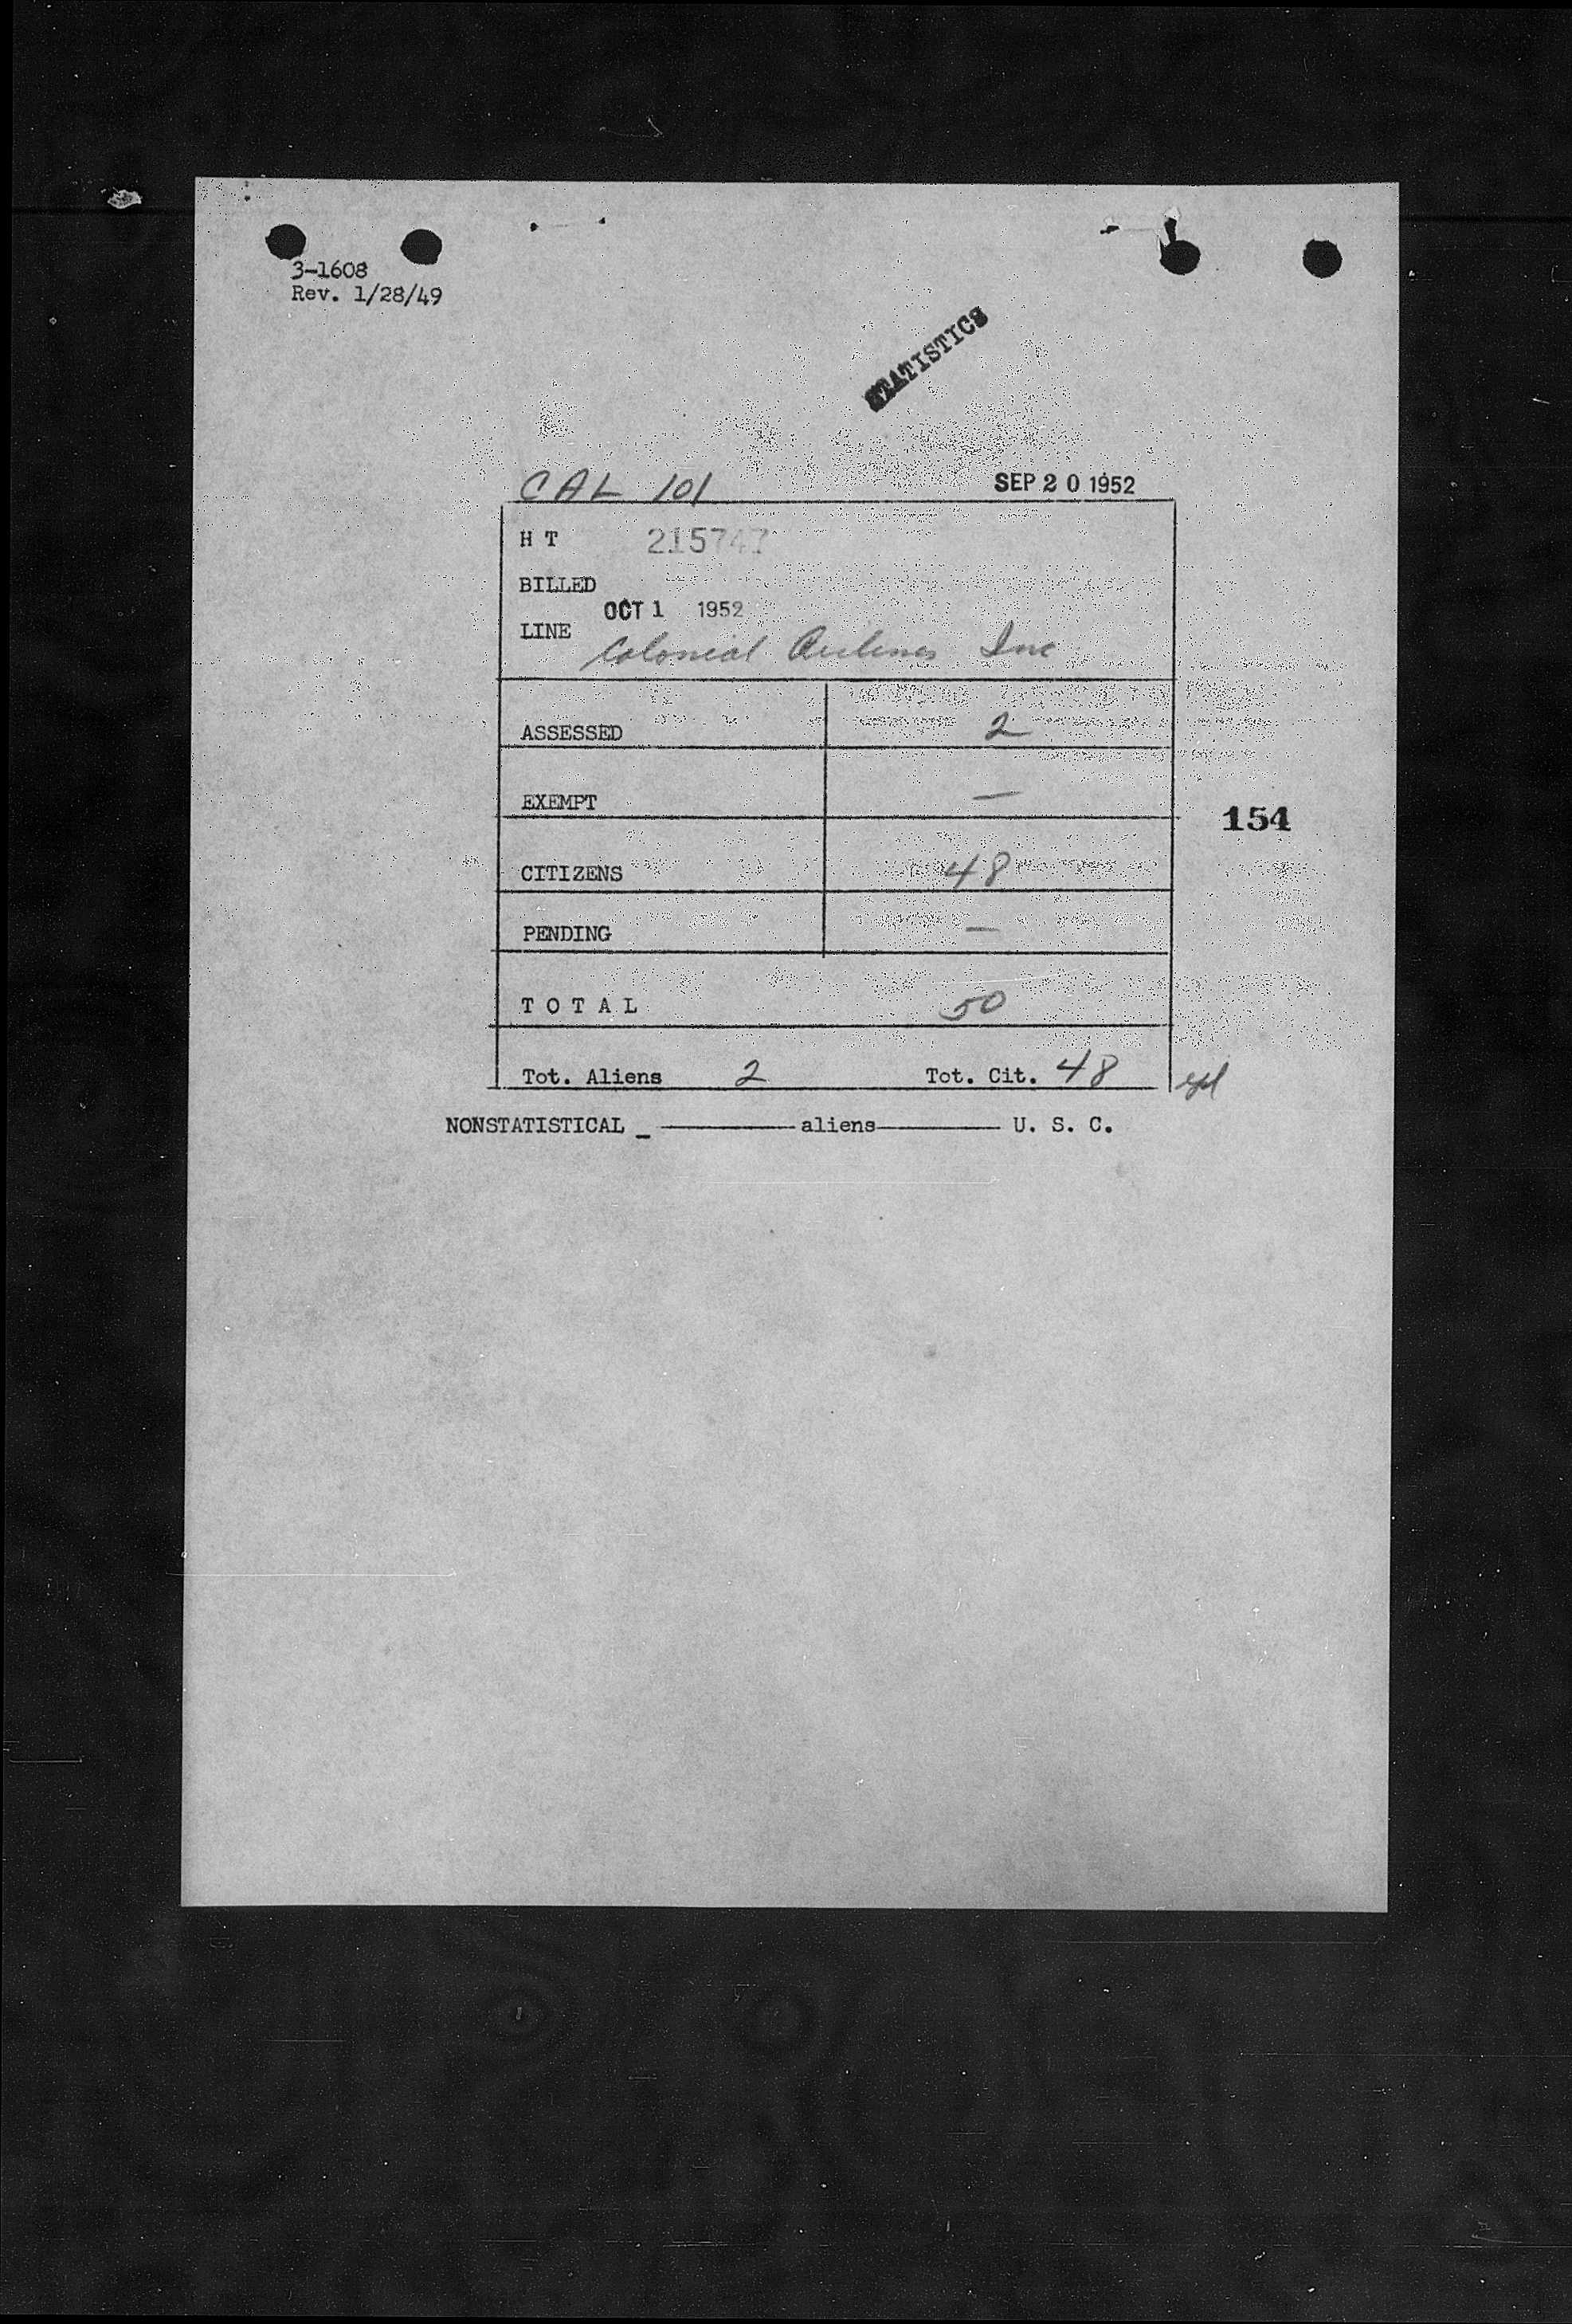 3-1608
Rev. 1/28/49
STATISTICS
CAL 101 SEP 20 1952
H T 215747
BILLED
OCT 1 1952
LINE Colonial Airlines Inc
ASSESSED 2
EXEMPT —
154
CITIZENS 48
PENDING —
T O T A L 50
Tot. Aliens 2 Tot. Cit. 48
NONSTATISTICAL _ ———— aliens ———— U. S. C.